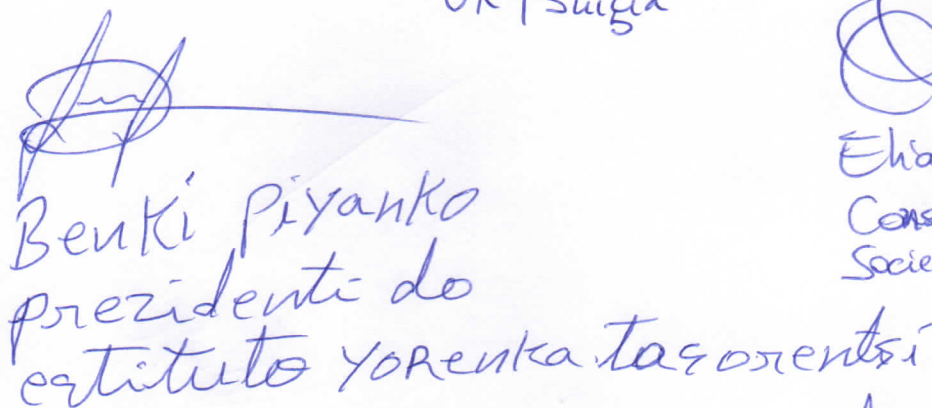 UK / Suíça
Benki Piyanko
prezidenti do
estituto YORenka tasorentsi
Elia
Cons
Socie